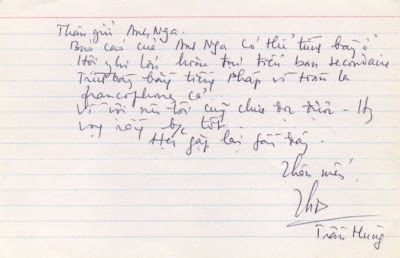 Thân gửi Anh Nga.
Báo cáo của Anh Nga có thể trình bày ở
Hội nghị lớn, trên ban secondaire
Trình bày bằng tiếng Pháp vì toàn là
francophone cả
Vì vội nên tôi cũng chưa
vọng rằng tốt.
Hẹn gặp lại gần đây.
Thân mến!
Trần Hùng